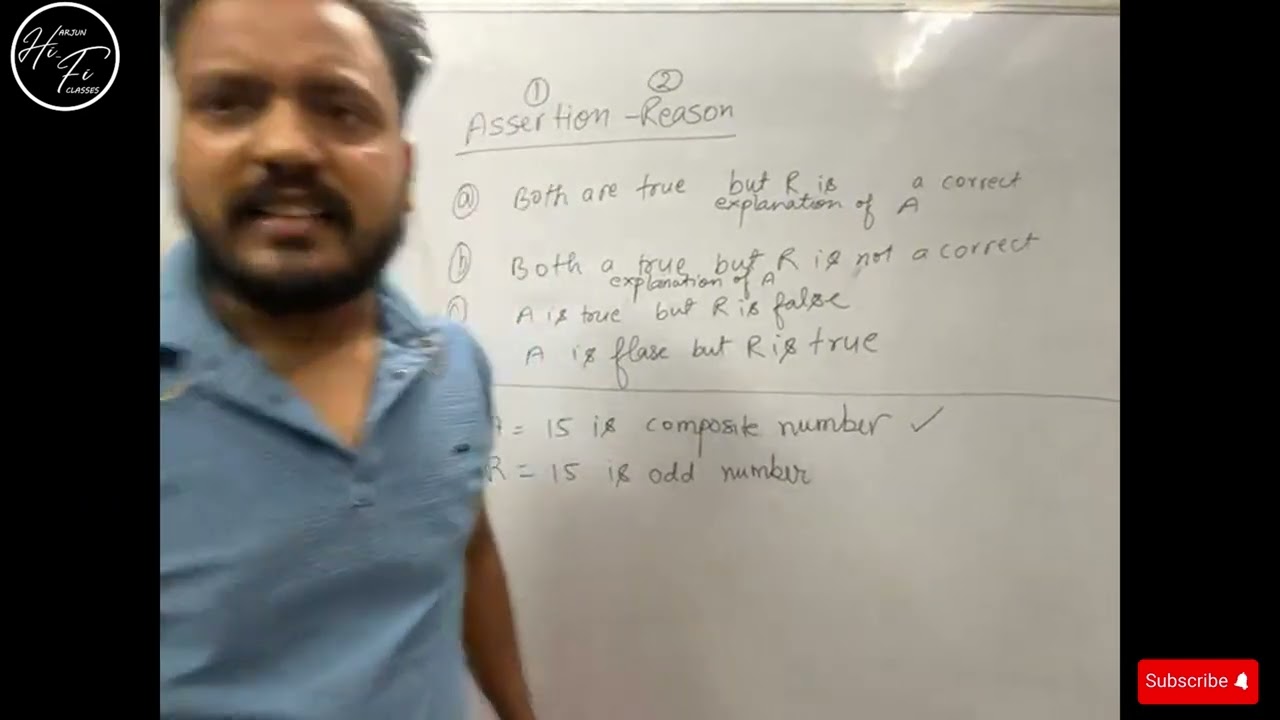 ARJUN
Hi-Fi
CLASSES
① ②
Assertion - Reason
ⓐ Both are true but R is a correct
explanation of A
ⓑ Both a true but R is not a correct
explanation of A
ⓒ A is true but R is false
A is flase but R is true
A = 15 is composite number ✓
R = 15 is odd number
Subscribe